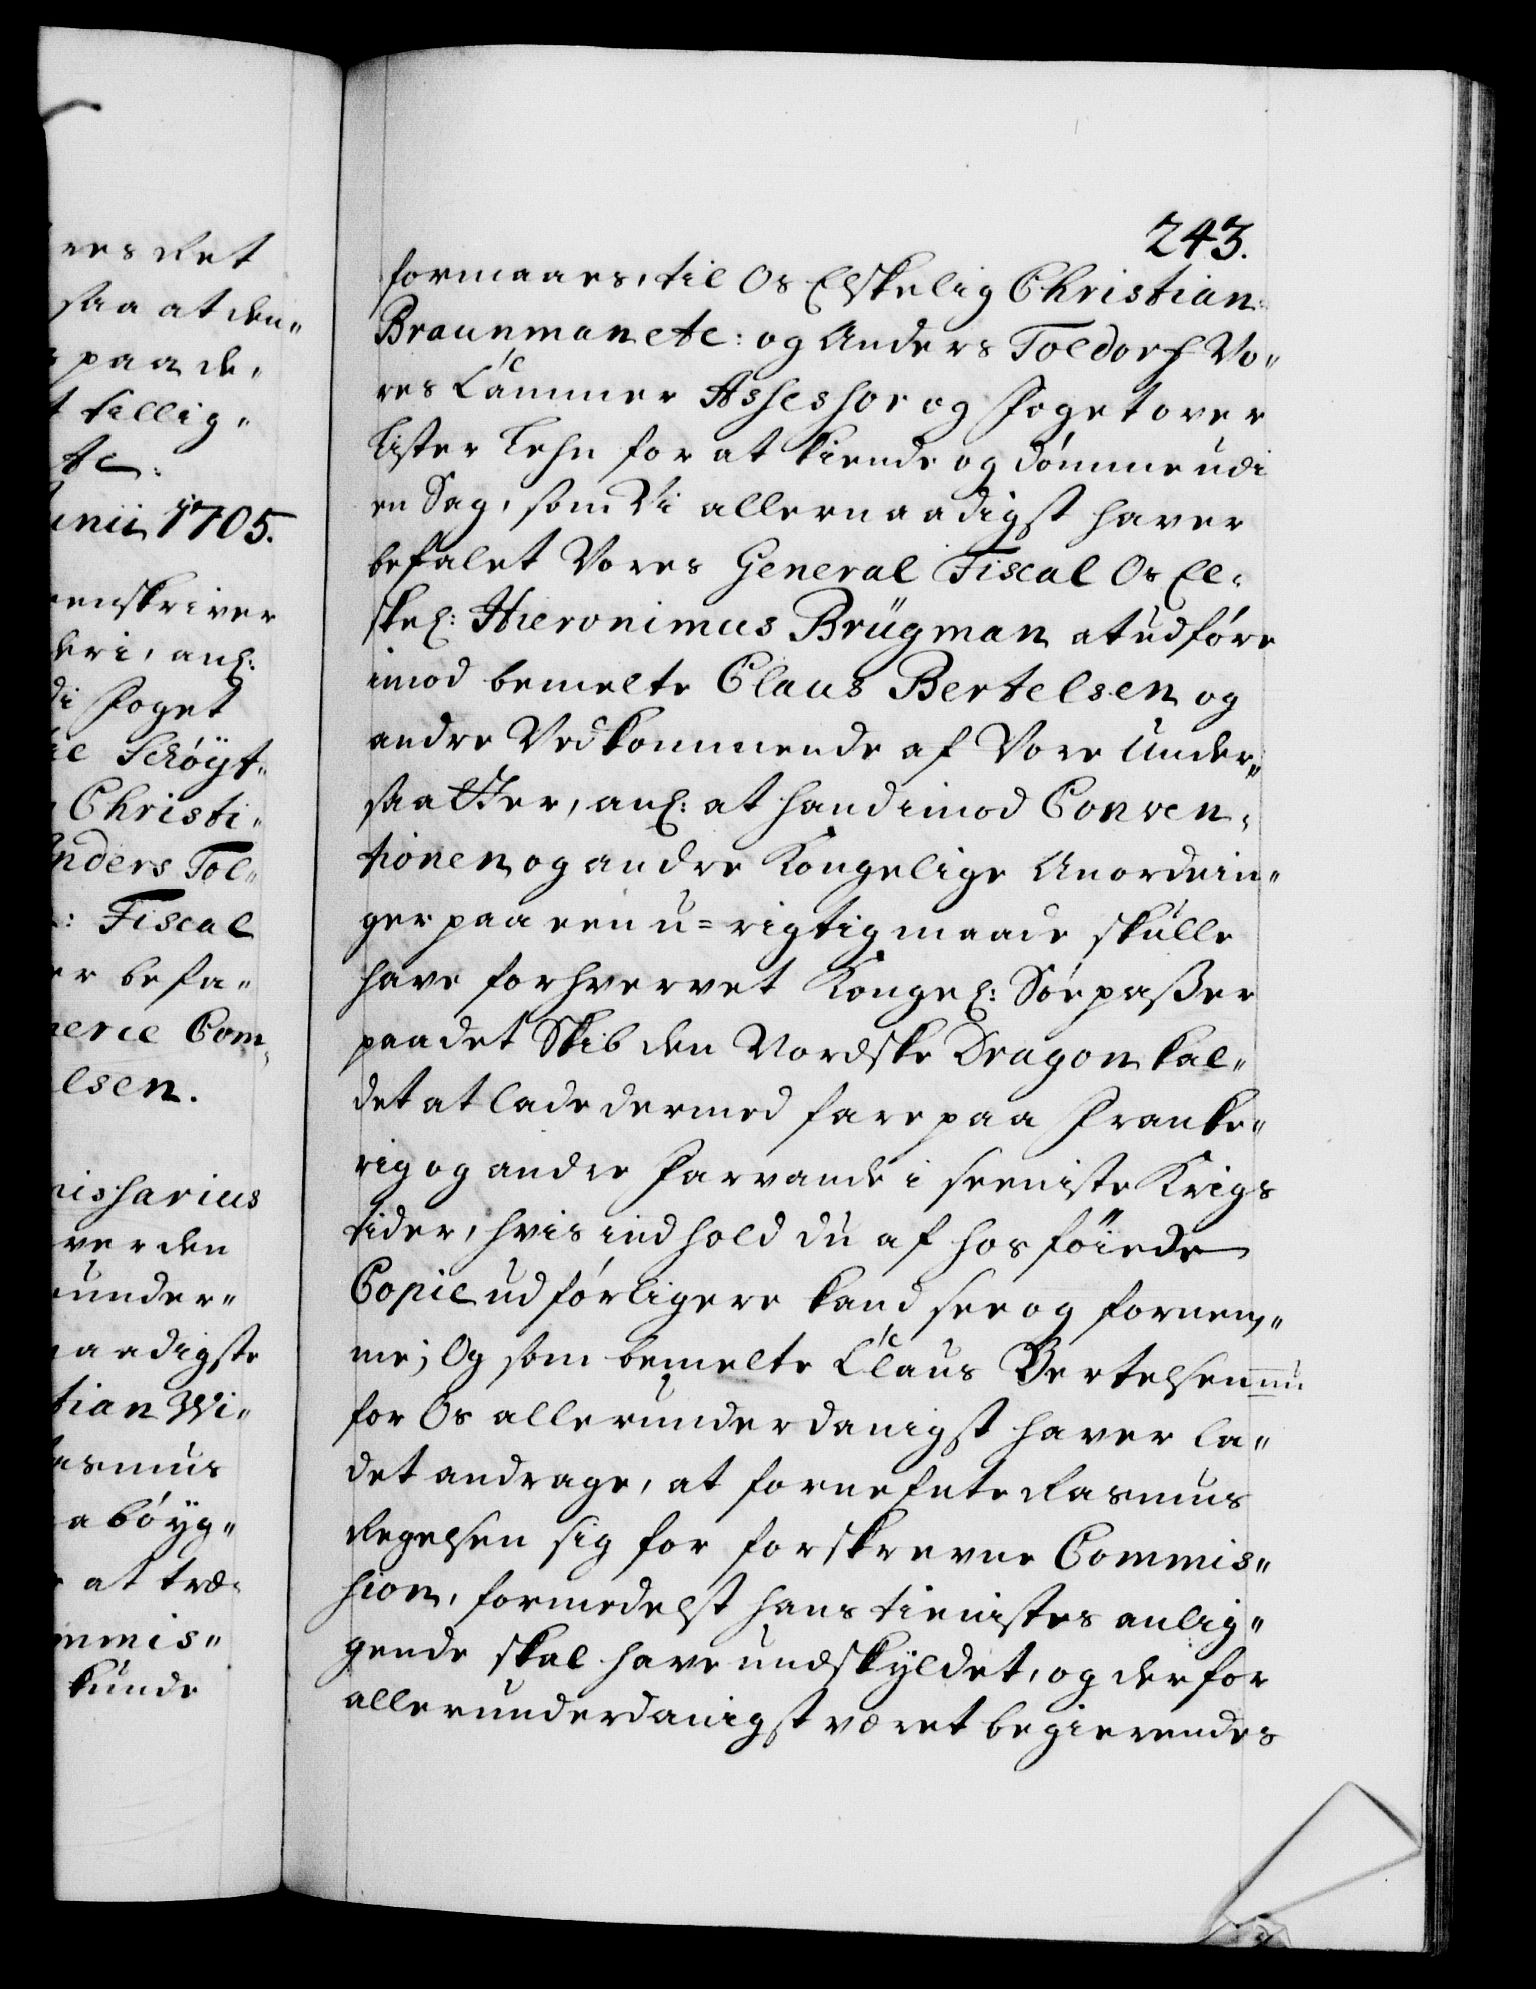 res Ret
saa at den„
paa de„
tillig„
tc:
unii 1705.
enskriver
deri, anl:
di Foget
Schöyt„
Christi„
Anders Tol„
: Fiscal
er befa„
merce Com„
elsen.
missarius
ver den
under„
naadigste
tian Wi„
Rasmus
a böyg„
at træ„
mmis„
kunde
243.
formaaes, til Os Elskelig Christian
Braunman etc: og Anders Toldorf Vo„
res Cammer Assessor og Foget over
Lister Lehn for at kiende og dömme udi
en Sag, som Vi allernaadigst haver
befalet Vores General Fiscal Os El„
skel: Hieronimus Brügman at udföre
imod bemelte Claus Bertelsen og
andre Vedkommende af Vore Under„
saatter, anl: at hand imod Conven„
tionen og andre Kongelige Anordnin„
ger paa een u=rigtig maade skulle
have forhvervet Kongel: Söepasser
paa det Skib den Nordske Dragon kal„
det at lade dermed fare paa Franke„
rig og andre Farvande i seeniste Krigs
tider, hvis indhold du af hosföiede
Copie udförligere kand see og fornem„
me; Og som bemelte Claus Bertelsen nu
for Os allerunderdanigst haver la„
det andrage, at fornefnte Rasmus
Regelsen sig for forskrevne Commis„
sion, formedelst hans tienistes anlig„
gende skal have undskyldet, og derfor
allerunderdanigst været begierendes